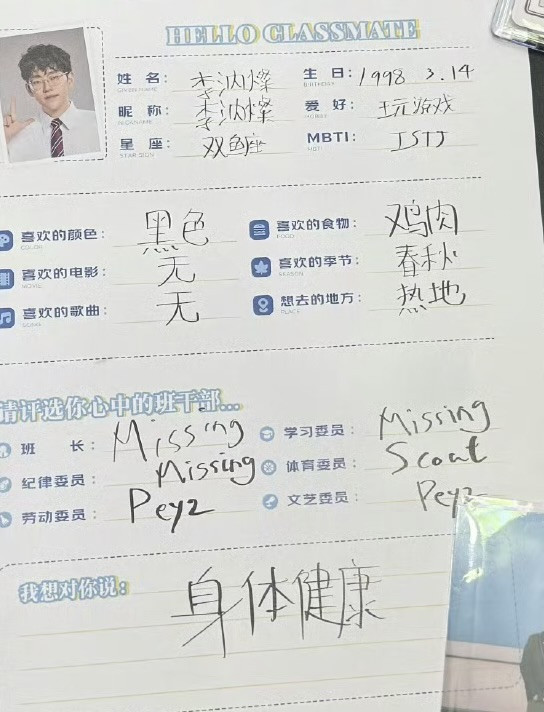 HELLO CLASSMATE
姓 名： 李汭燦 生 日： 1998 3.14
昵 称： 李汭燦 爱 好： 玩游戏
星 座： 双鱼座 MBTI： ISTJ
喜欢的颜色： 黑色 喜欢的食物： 鸡肉
喜欢的电影： 无 喜欢的季节： 春秋
喜欢的歌曲： 无 想去的地方： 热地
请评选你心中的班干部...
班 长： Missing 学习委员： Missing
纪律委员： Missing 体育委员： Scout
劳动委员： Peyz 文艺委员： Peyz
我想对你说： 身体健康